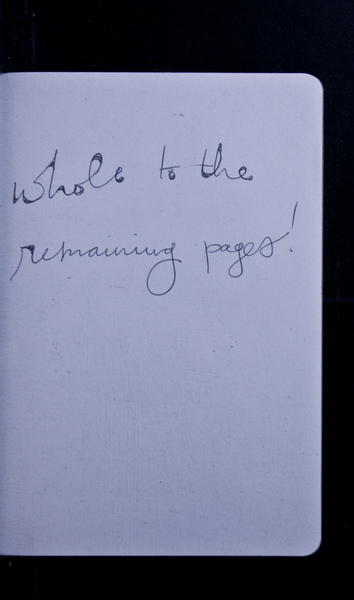 whole to the
remaining pages!